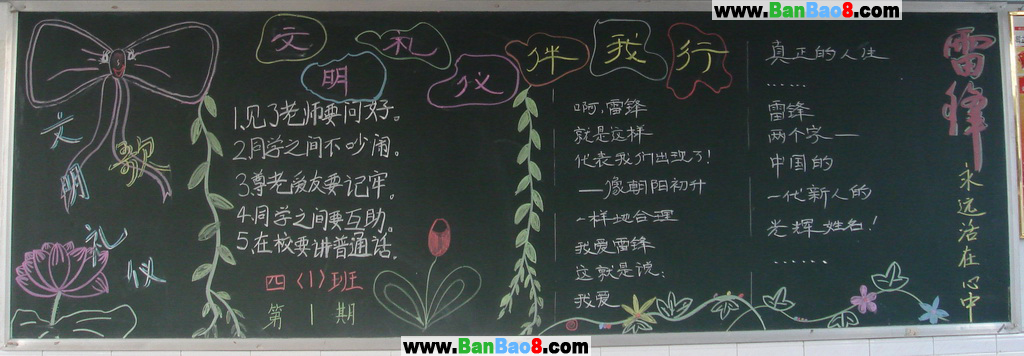 www.BanBao8.com
文明礼仪伴我行
文明礼仪
歌
1.见了老师要问好。
2.同学之间不吵闹。
3.尊老爱友要记牢。
4.同学之间要互助。
5.在校要讲普通话。
四〈1〉班
第1期
啊,雷锋
就是这样
代表我们出现了!
——像朝阳初升
一样地合理
我爱雷锋
这就是说:
我爱
真正的人生
……
雷锋
两个字——
中国的
一代新人的
光辉姓名!
……
雷锋
永远活在心中
www.BanBao8.com